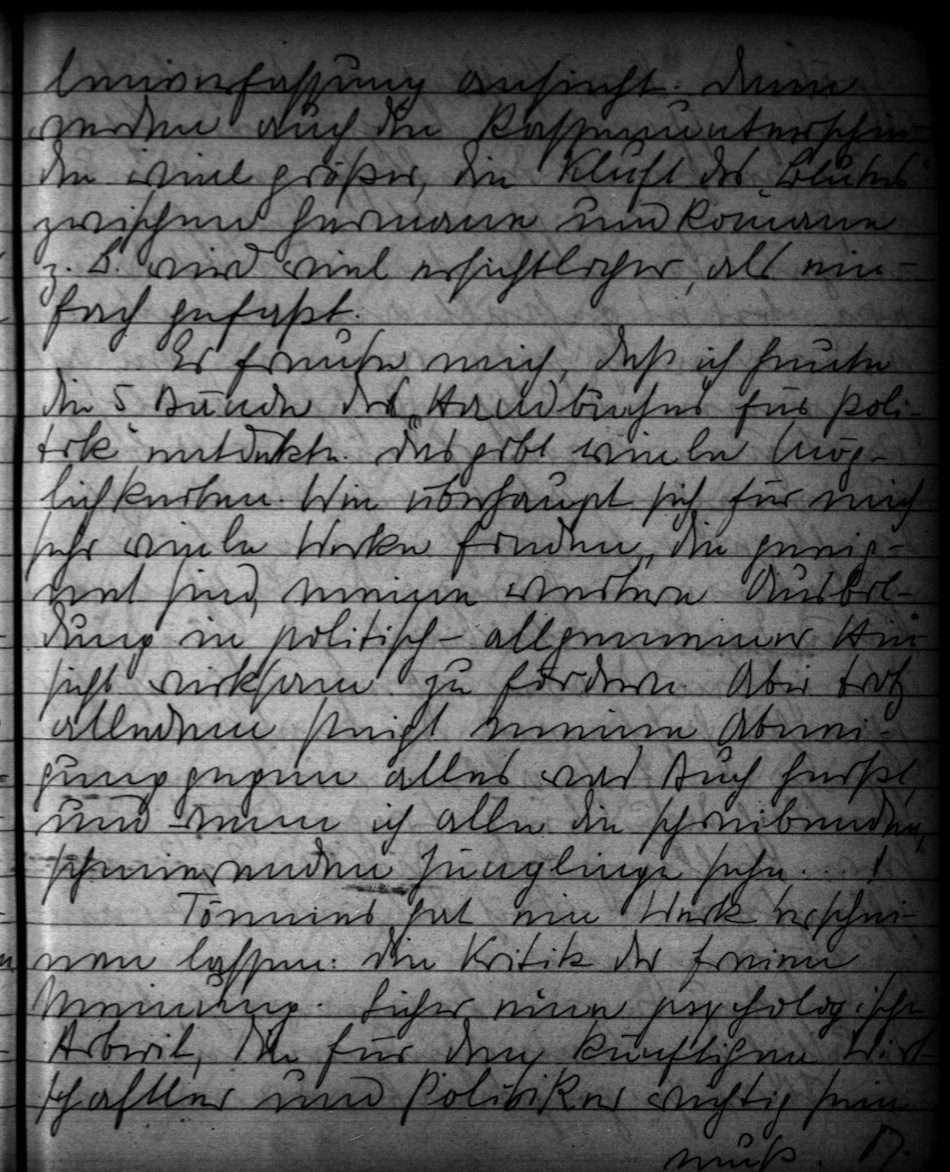 lenverfassung ansieht. Dann
werden auch die Rassenunterschie-
de viel größer, die Kluft des „Blutes“
zwischen Germane und Romane
z. B. wird viel ersichtlicher, als ein-
fach gefaßt.
Es freute mich, daß ich heute
die 5 Bände des „Handbuches für Poli-
tik“ entdekte. Das gibt viele Mög-
lichkeiten. Wie überhaupt sich für mich
sehr viele Werke finden, die geeig-
net sind, meine weitere Ausbil-
dung in politisch-allgemeiner Hin-
sicht wirksam zu fördern. Aber trotz
alledem steigt meine Abnei-
gung gegen alles was Buch heißt,
und wenn ich alle die schreibenden,
schmierenden Jünglinge sehe .... !
Tönnies hat ein Werk erschei-
nen lassen: die Kritik der freien
Meinung. Sicher eine psychologische
Arbeit, die für den künftigen Wirt-
schaftler und Politiker wichtig sein
muß.